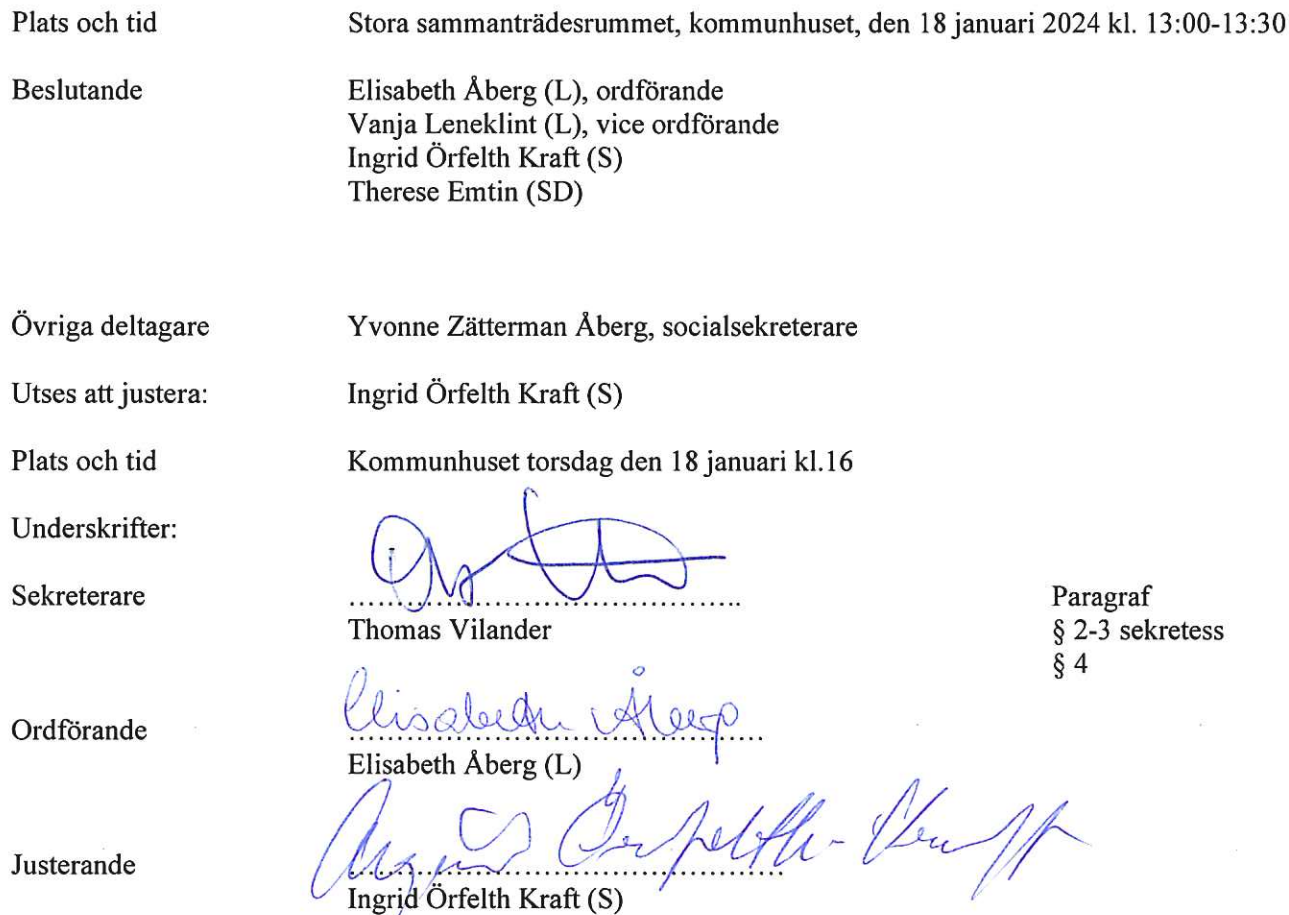 Plats och tid Stora sammanträdesrummet, kommunhuset, den 18 januari 2024 kl. 13:00-13:30
Beslutande Elisabeth Åberg (L), ordförande
Vanja Leneklint (L), vice ordförande
Ingrid Örfelth Kraft (S)
Therese Emtin (SD)
Övriga deltagare Yvonne Zätterman Åberg, socialsekreterare
Utses att justera: Ingrid Örfelth Kraft (S)
Plats och tid Kommunhuset torsdag den 18 januari kl.16
Underskrifter:
Sekreterare ........................................ Paragraf
Thomas Vilander § 2-3 sekretess
§ 4
Elisabeth Åberg
Ordförande ..........................................
Elisabeth Åberg (L)
Ingrid Örfelth-Kraft
Justerande ............................................
Ingrid Örfelth Kraft (S)